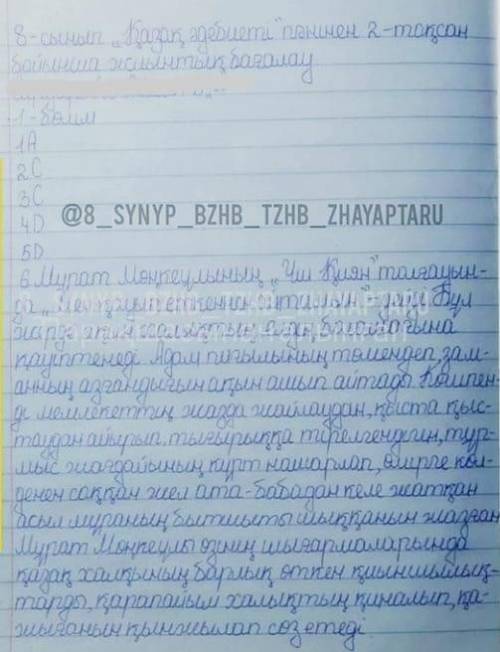 8-сынып „Қазақ әдебиеті" пәнінен 2-тоқсан
бойынша жиынтық бағалау
1-бөлім
1A
2C
3C
@8_SYNYP_BZHB_TZHB_ZHAYAPTARU
4D
5D
6 Мурат Мөңкеұлының „Үш Қиян" толғауын-
да „Мен қауіп еткеннен айтамын" дейді Бұл
жерде ақын халықтың алдағы болашағына
қауіптенеді Адам пиғылының төмендеп, зам-
анның азғандығын ақын ашып айтады Көшпен-
ді мемлекеттің жазда жайлаудан, қыста қыс-
таудан айырып, тығырыққа тірелгендігін, тұр-
мыс жағдайының күрт нашарлап, өмірге көл-
денең соққан жел ата-бабадан келе жатқан
асыл мұраның бытшыты шыққанын жазған
Мурат Мөңкеұлы өзінің шығармаларында
қазақ халқының барлық өткен қиыншылық-
тарды, қарапайым халықтың қиналып, қа-
жығанын қынжылап сөз етеді